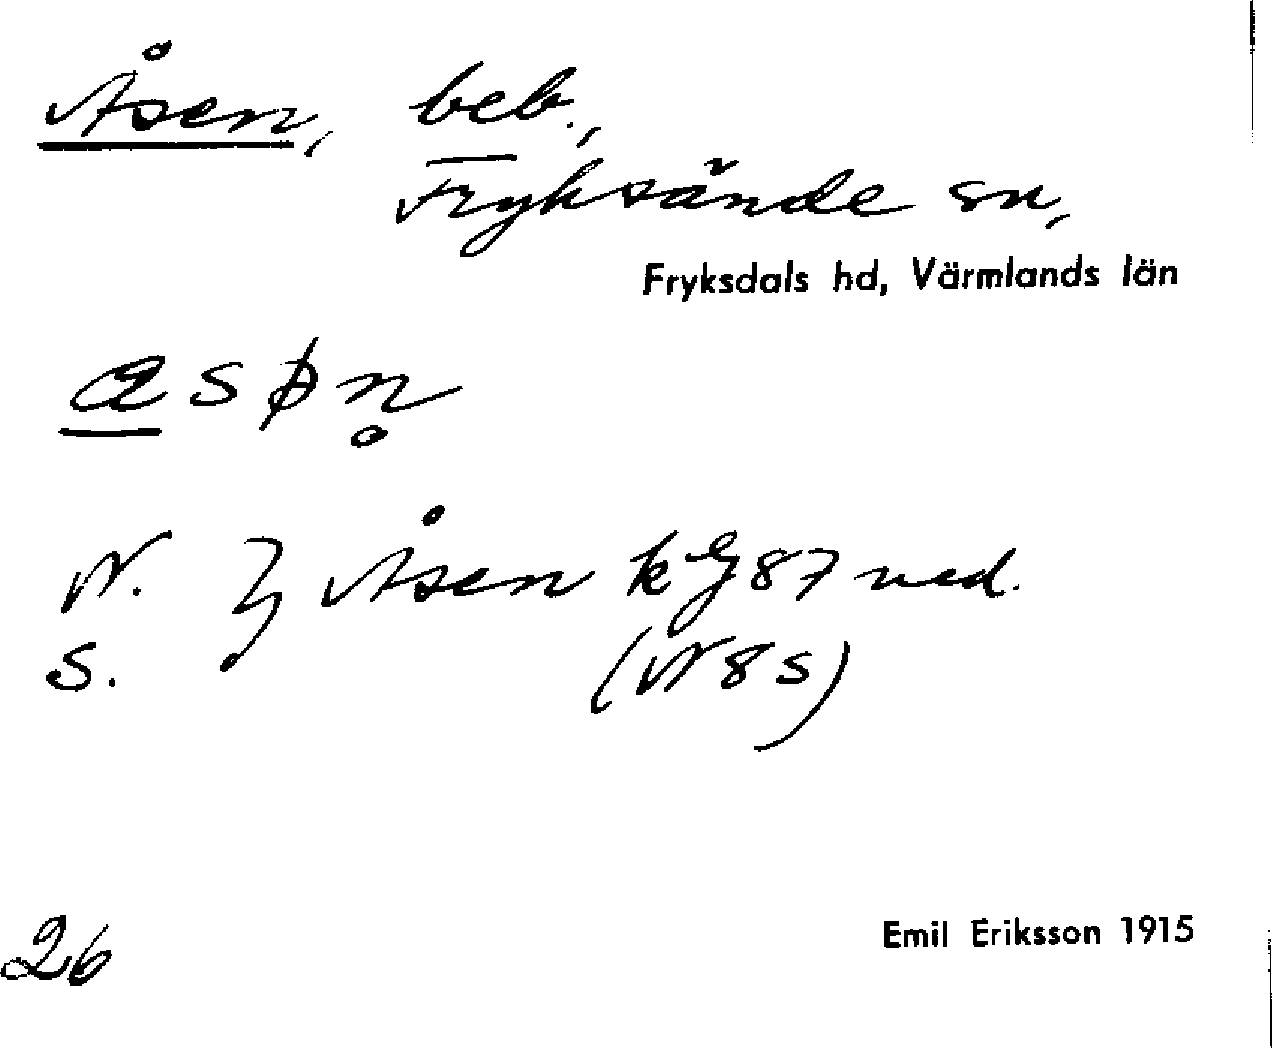 Åsen, beb.,
Fryksände sn,
Fryksdals hd, Värmlands län
æsøn̥
N. } Åsen kg 87 ned.
S. (N 8 s)
26
Emil Eriksson 1915